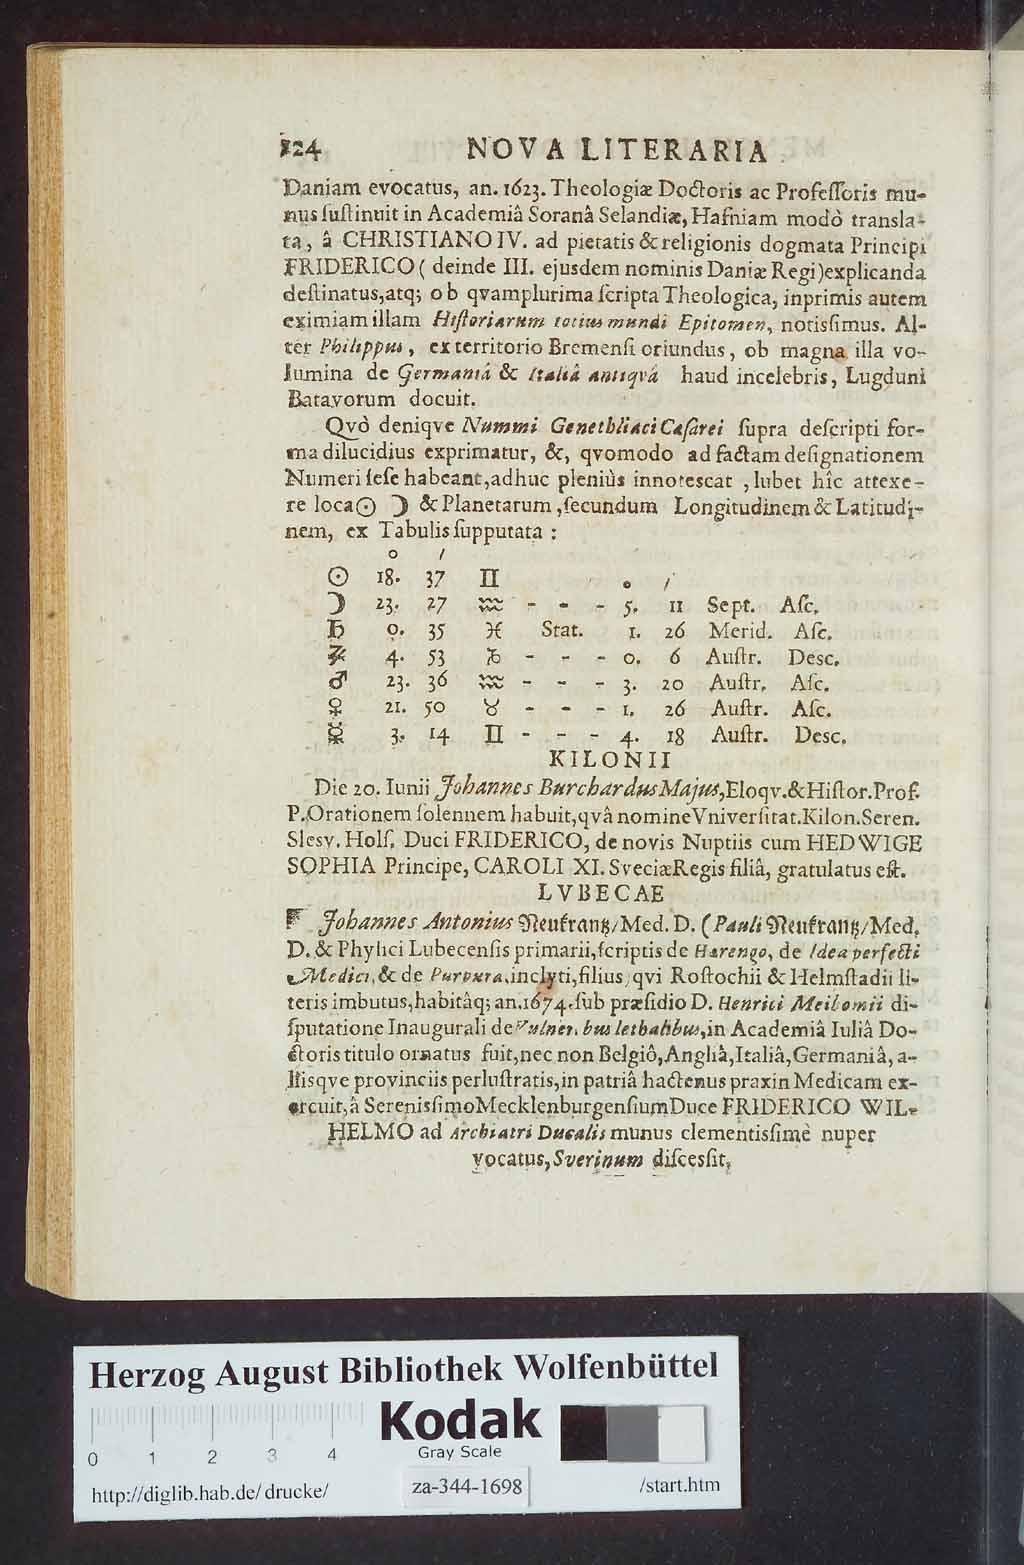 124 NOVA LITERARIA
Daniam evocatus, an. 1623. Theologiæ Doctoris ac Professoris mu-
nus sustinuit in Academiâ Soranâ Selandiæ, Hafniam modò transla-
ta, â CHRISTIANO IV. ad pietatis & religionis dogmata Principi
FRIDERICO ( deinde III. ejusdem nominis Daniæ Regi) explicanda
destinatus, atq; ob qvamplurima scripta Theologica, inprimis autem
eximiam illam Historiarum totius mundi Epitomen, notissimus. Al-
ter Philippus, ex territorio Bremensi oriundus, ob magna illa vo-
lumina de Germaniâ & Italiâ antiqvâ haud incelebris, Lugduni
Batavorum docuit.
Qvò deniqve Nummi Genethliaci Cæsarei supra descripti for-
ma dilucidius exprimatur, &, qvomodo ad factam designationem
Numeri sese habeant, adhuc pleniùs innotescat, lubet hîc attexe-
re loca ☉ ☽ & Planetarum, secundum Longitudinem & Latitudi-
nem, ex Tabulis supputata :
o /
☉ 18. 37 ♊ o /
☽ 23. 27 ♒ - - - 5. 11 Sept. Asc.
♄ 0. 35 ♓ Stat. 1. 26 Merid. Asc.
♃ 4. 53 ♑ - - - 0. 6 Austr. Desc.
♂ 23. 36 ♒ - - - 3. 20 Austr. Asc.
♀ 21. 50 ♉ - - - 1. 26 Austr. Asc.
☿ 3. 14 ♊ - - - 4. 18 Austr. Desc.
KILONII
Die 20. Iunii Johannes Burchardus Majus, Eloqv. & Histor. Prof.
P. Orationem solennem habuit, qvâ nomine Vniversitat. Kilon. Seren.
Slesv. Hols. Duci FRIDERICO, de novis Nuptiis cum HEDWIGE
SOPHIA Principe, CAROLI XI. Sveciæ Regis filiâ, gratulatus est.
LVBECAE
Johannes Antonius Neukrantz/ Med. D. (Pauli Neukrantz/ Med.
D. & Physici Lubecensis primarii, scriptis de Harengo, de Idea perfecti
Medici, & de Purpura, inclyti, filius, qvi Rostochii & Helmstadii li-
teris imbutus, habitâq; an. 1674. sub præsidio D. Henrici Meibomii di-
sputatione Inaugurali de Vulneribus lethalibus, in Academiâ Iuliâ Do-
ctoris titulo ornatus fuit, nec non Belgiô, Angliâ, Italiâ, Germaniâ, a-
liisqve provinciis perlustratis, in patriâ hactenus praxin Medicam ex-
ercuit, â Serenissimo Mecklenburgensium Duce FRIDERICO WIL-
HELMO ad Archiatri Ducalis munus clementissimè nuper
vocatus, Sverinum discessit.
Herzog August Bibliothek Wolfenbüttel
Kodak
Gray Scale
0 1 2 3 4
http://diglib.hab.de/drucke/ za-344-1698 /start.htm